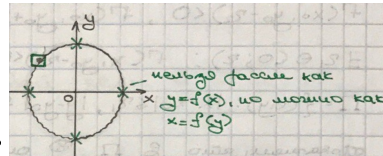 y
нельзя рассм как
y=f(x), но можно как
x=f(y)
0
x